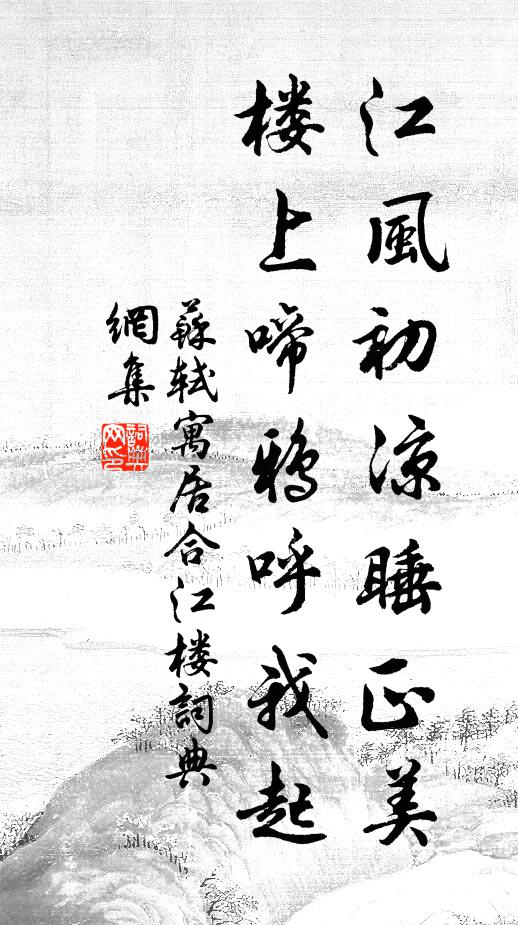 江風初涼睡正美
楼上啼鴉呼我起
蘇軾寓居合江楼詞典
網集